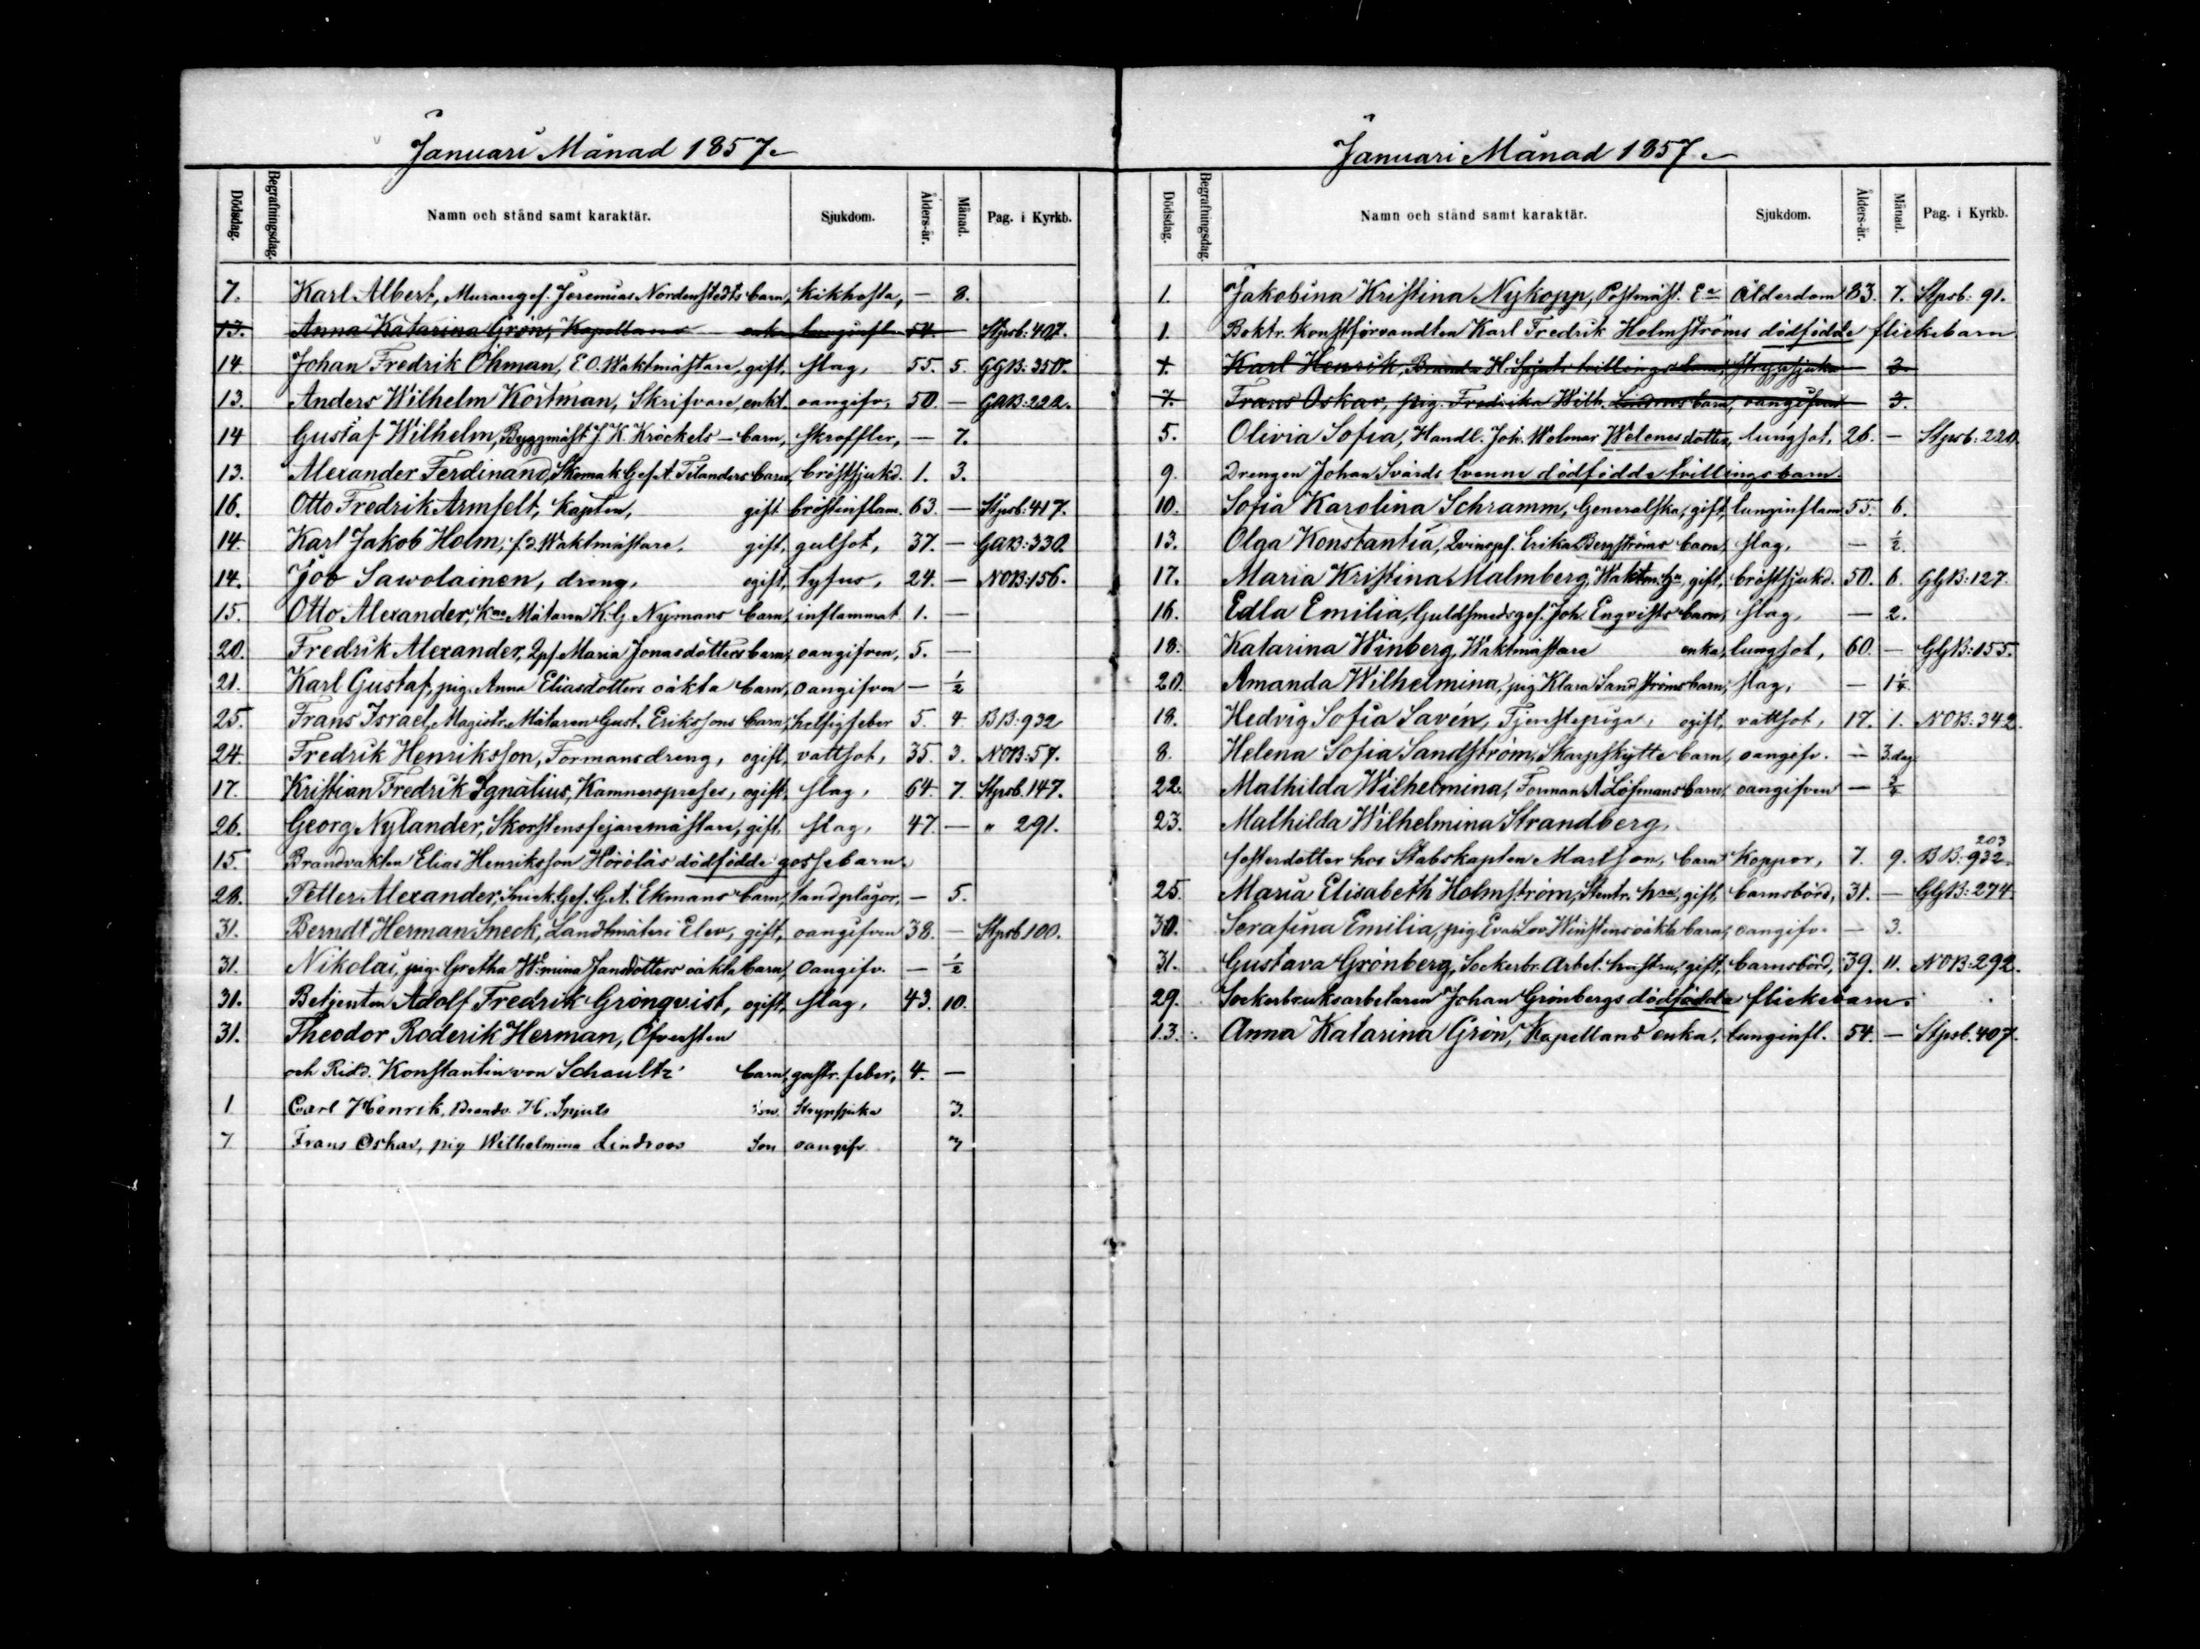 Januari Månad 1857.
Dödsdag. Begrafningsdag. Namn och stånd samt karaktär. Sjukdom. Ålders-år. Månad. Pag. i Kyrkb.
7. Karl Albert, Muraregef. Jeremias Nordenstedts barn, kikhosta, — 8.
13. Anna Katarina Grön, Kapellans enka lunginfl. 54. — Stpsb: 407.
14. Johan Fredrik Öhman, E.O. Waktmästare, gift, slag, 55. 5. GGB: 350.
13. Anders Wilhelm Körtman, Skrifvare, enkl. oangifv, 50. — GGB: 222.
14 Gustaf Wilhelm, Byggmäst J. K. Kröckels — barn, skroffler, — 7.
13. Alexander Ferdinand, Skomak. Gef. A. Tilanders barn, bröstsjukd. 1. 3.
16. Otto Fredrik Armfelt, Kapten, gift bröstinflam. 63. — Stpsb: 417.
14. Karl Jakob Holm, f.d. Waktmästare, gift, gulsot, 37. — GGB: 330.
14. Job Sawolainen, dreng, ogift, tyfus, 24. — NOB: 156.
15. Otto Alexander, Mätaren K. G. Nymans barn, inflammat 1. —
20. Fredrik Alexander, Qpf. Maria Jonasdotters barn, oangifven, 5. —
21. Karl Gustaf, pig. Anna Eliasdotters oäkta barn, oangifven — ½
25. Frans Israel, Magistr. Mätaren Gust. Erikssons barn, hetsigfeber 5. 4. BB: 932
24. Fredrik Henriksson, Formansdreng, ogift, vattsot, 35. 3. NOB: 57.
17. Kristian Fredrik Ignatius, Kamnerspreses, ogift, slag, 64. 7. Stpsb. 147.
26. Georg Nylander, Skorstensfejaremästare, gift, slag, 47. — " 291.
15. Brandvakten Elias Henriksson Höröläs dödfödde gossebarn.
28. Petter Alexander, Snick. Gef. G. A. Ekmans barn, tandplågor, — 5.
31. Berndt Herman Sneck, Landtmäteri Elev, gift, oangifven 38. — Stpsb 100.
31. Nikolai, pig. Gretha W:mina Jansdotters oäkta barn, oangifv. — ½
31. Betjenten Adolf Fredrik Grönqvist, ogift, slag, 43. 10.
31. Theodor Roderik Herman, Öfversten
och Ridd. Konstantin von Schoultz barn, gastr. feber, 4. —
1 Carl Henrik, Brandv. H. Spjuts son Strypsjuka 3.
7 Frans Oskar, pig Wilhelmina Lindroos Son oangifv. 7
Januari Månad 1857.
Dödsdag. Begrafningsdag. Namn och stånd samt karaktär. Sjukdom. Ålders-år. Månad. Pag. i Kyrkb.
1. Jakobina Kristina Nykopp, Postmäst. Ea Ålderdom 83. 7. Stpsb: 91.
1. Boktr. konstförvandten Karl Fredrik Holmströms dödfödde flickebarn
1. Karl Henrik, Brandv. H. Spjuts tvillingsbarn, strypsjuka — 3.
7. Frans Oskar, pig. Fredrika Wilh. barn, oangifven — 3.
5. Olivia Sofia, Handl. Joh. Wolmar Welenes dotter, lungsot, 26. — Stpsb: 220.
9. Drengen Johan Svärds tvenne dödfödde tvillingsbarn.
10. Sofia Karolina Schramm, Generalska, gift, lunginflam. 55. 6.
13. Olga Konstantia, Qvinspf. Erika Bergströms barn, slag, — ½.
17. Maria Kristina Malmberg, Waktm. Ha, gift, bröstsjukd. 50. 6. GGB: 127.
16. Edla Emilia, Guldsmedsgef. Joh. Enqvists barn, slag, — 2.
18. Katarina Winberg, Waktmästare enka, lungsot, 60. — GGB: 155.
20. Amanda Wilhelmina, pig Klara Sandströms barn, slag, — 1¼.
18. Hedvig Sofia Savén, Tjenstepiga, ogift, vattsot, 17. 1. NOB: 342.
8. Helena Sofia Sandström, Skarpskytte barn, oangifv. — 3. dag
22. Mathilda Wilhelmina, Forman A Löfmans barn, oangifven — ¾
23. Mathilda Wilhelmina Strandberg,
fosterdotter hos Stabskapten Martson, barn Koppor, 7. 9. BB: 932. 203
25. Maria Elisabeth Holmström, Stentr. hru, gift, barnsbörd, 31. — GGB: 274.
30. Serafina Emilia, pig. Eva Lov. Winstens oäkta barn, oangifv. — 3.
31. Gustava Grönberg, Sockerbr. Arbet. hustru, gift, barnsbörd, 39. 11. NOB: 292.
29. Sockerbruksarbetaren Johan Grönbergs dödfödda flickebarn.
13. Anna Katarina Grön, Kapellans enka, lunginfl. 54. — Stpsb. 407.